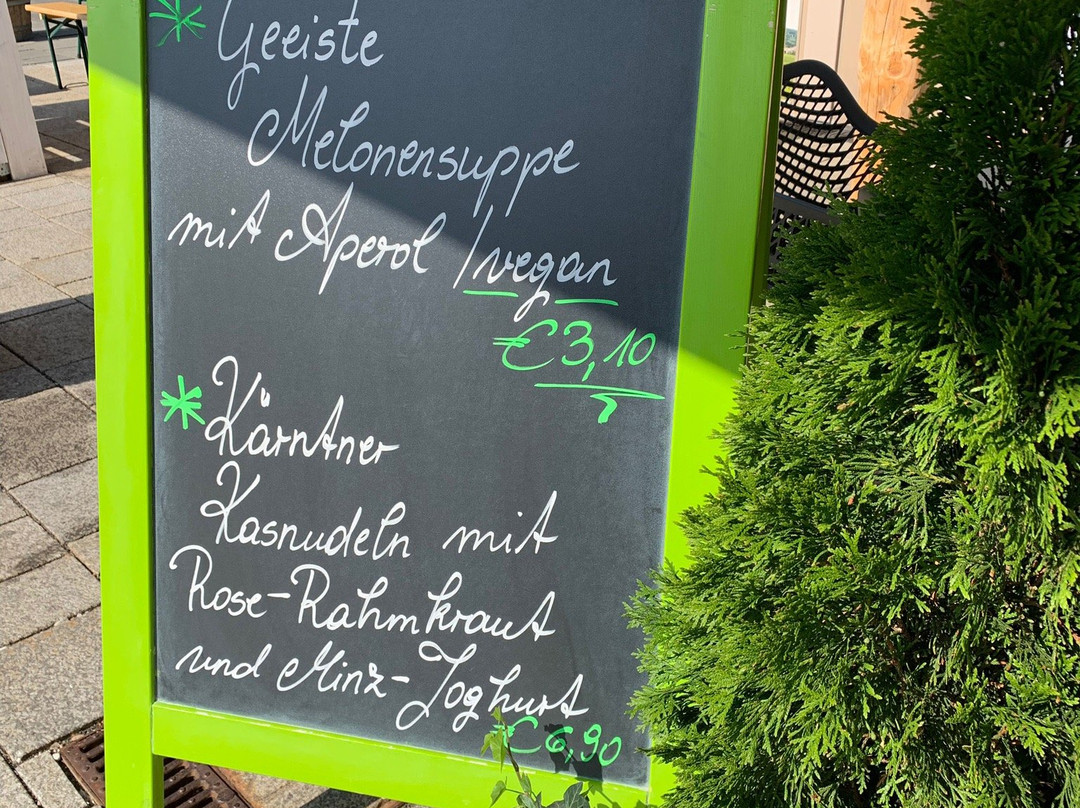 * Geeiste
Melonensuppe
mit Aperol /vegan
€3,10
* Kärntner
Kasnudeln mit
Rose-Rahmkraut
und Minz-Joghurt
€6,90